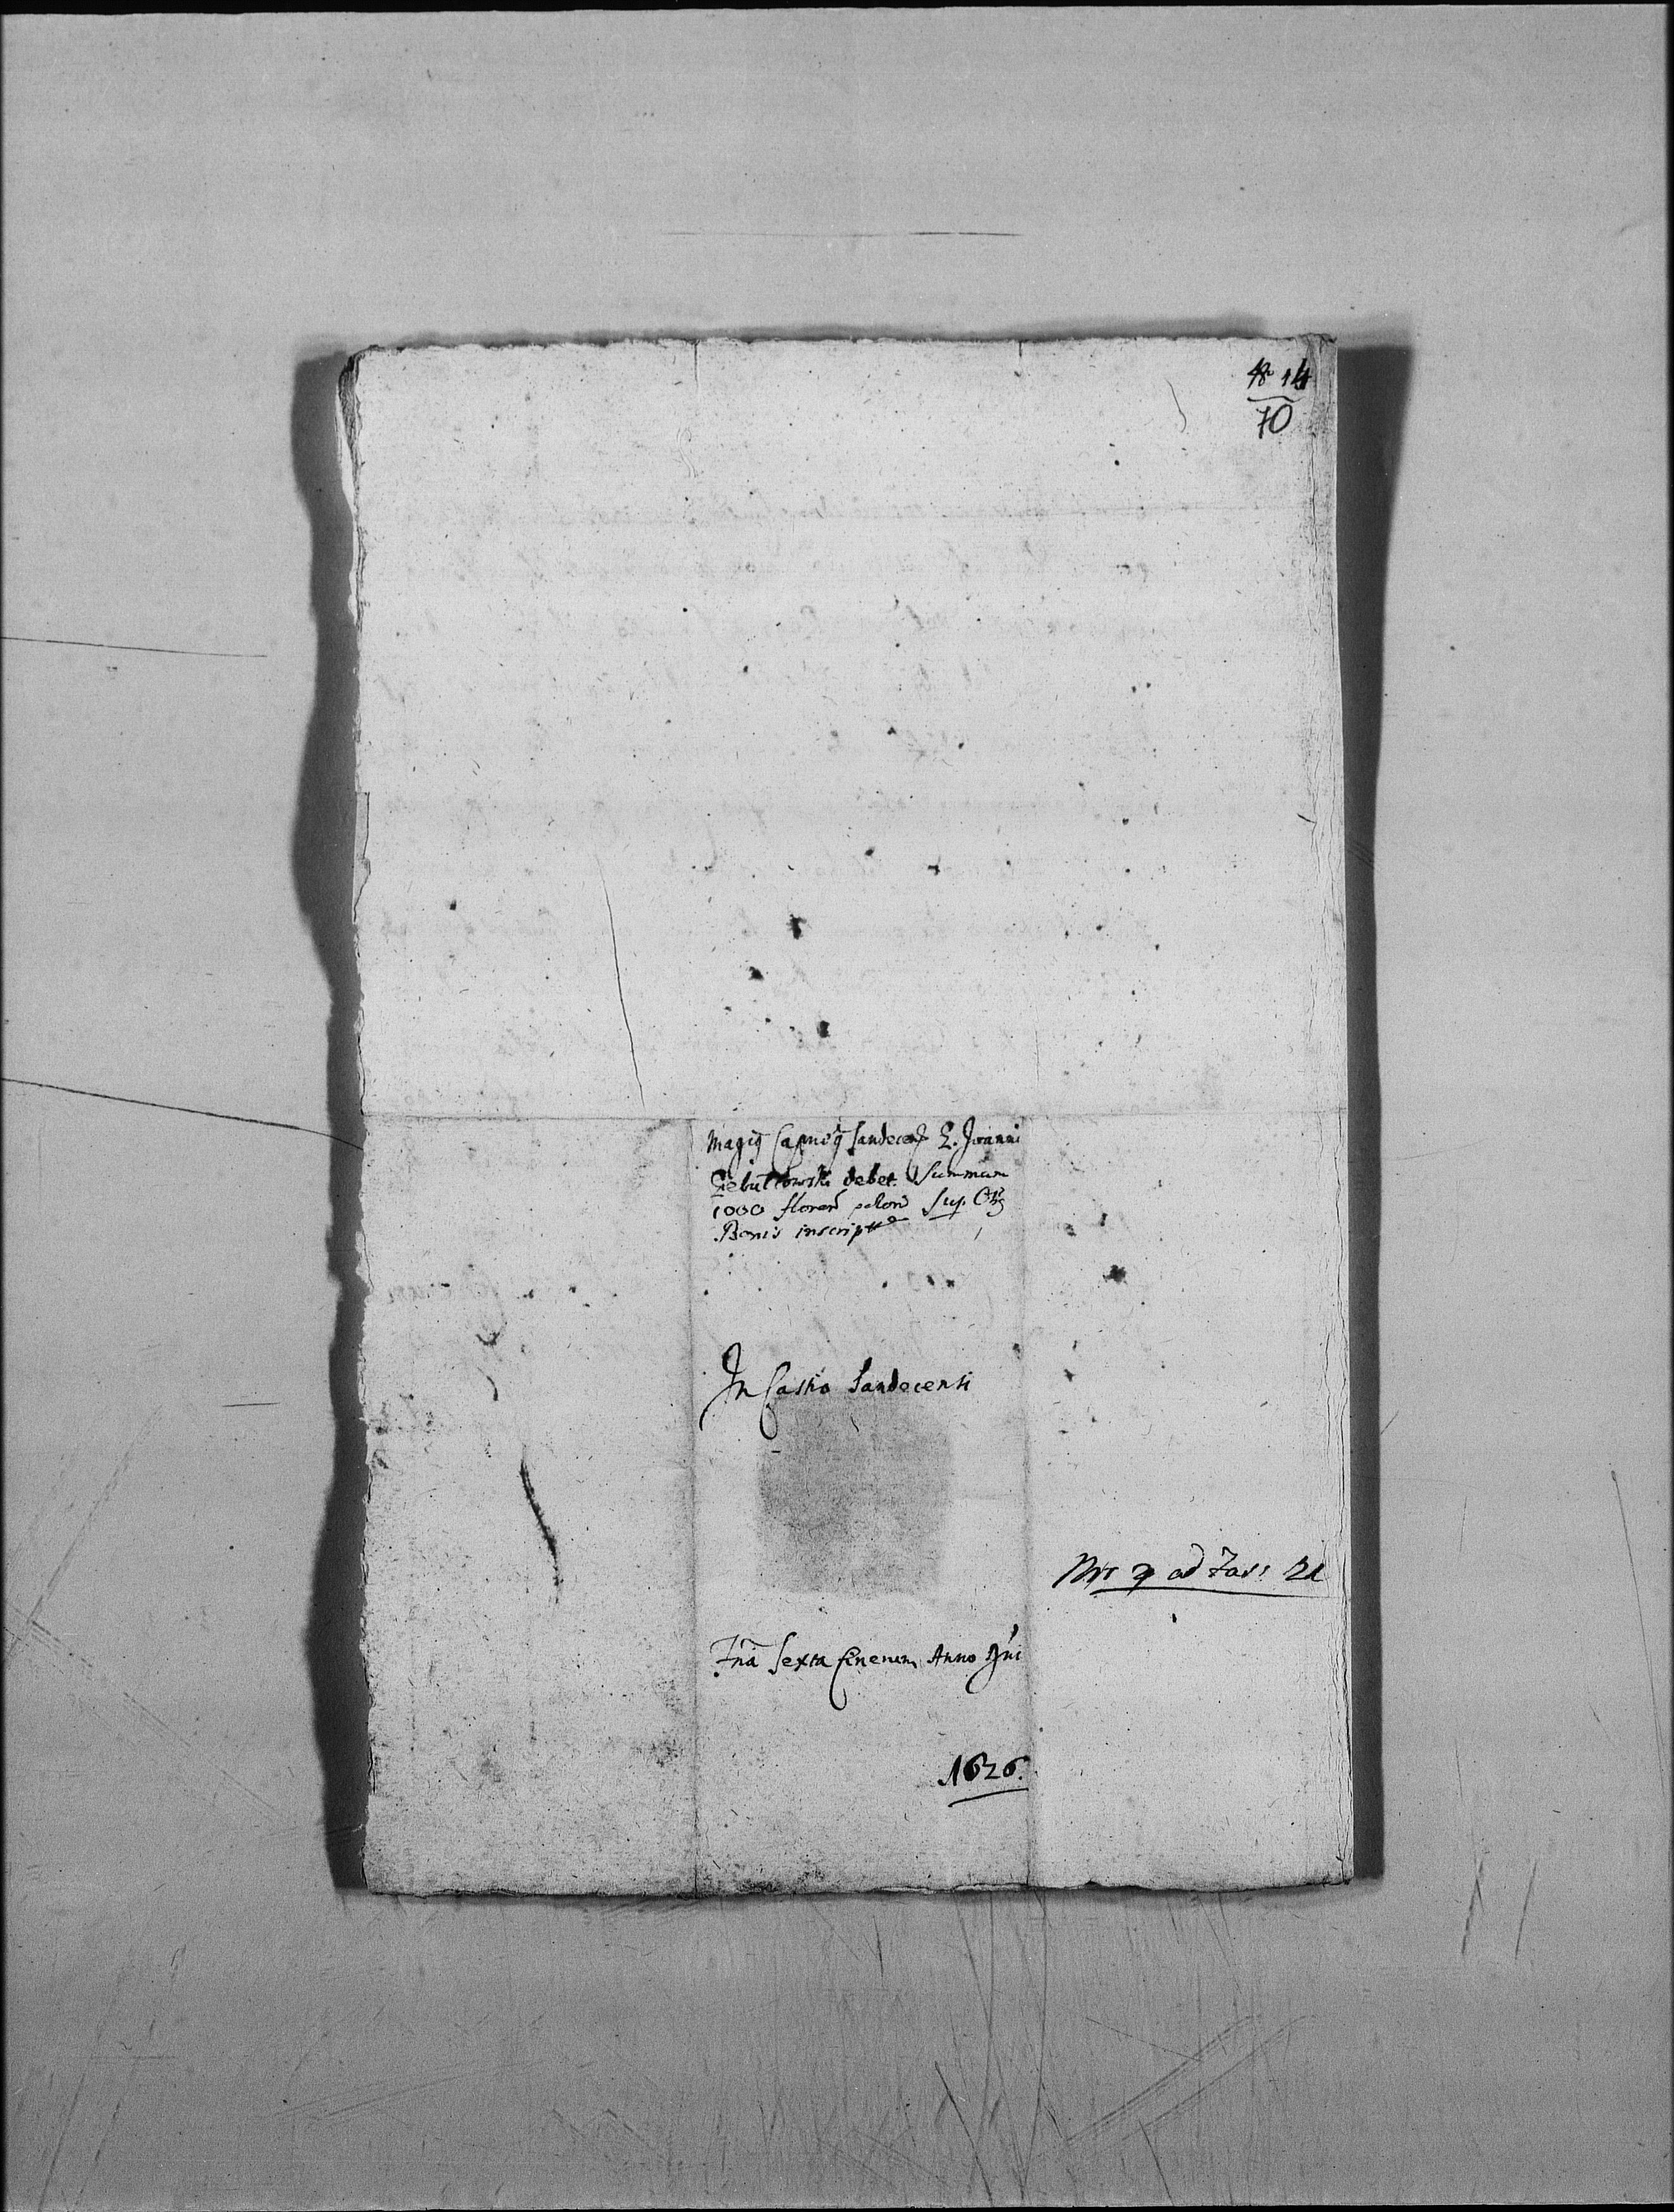 14
70
Magiq Capneq Sandecens G. Joanni
Giebultowski debet Summam
1000 floren polon Sup.
Bonis inscript
In Castro Sandecensi
Nro 9 ad Fasc 21
Fria Sexta Cinerum Anno Dni
1626.